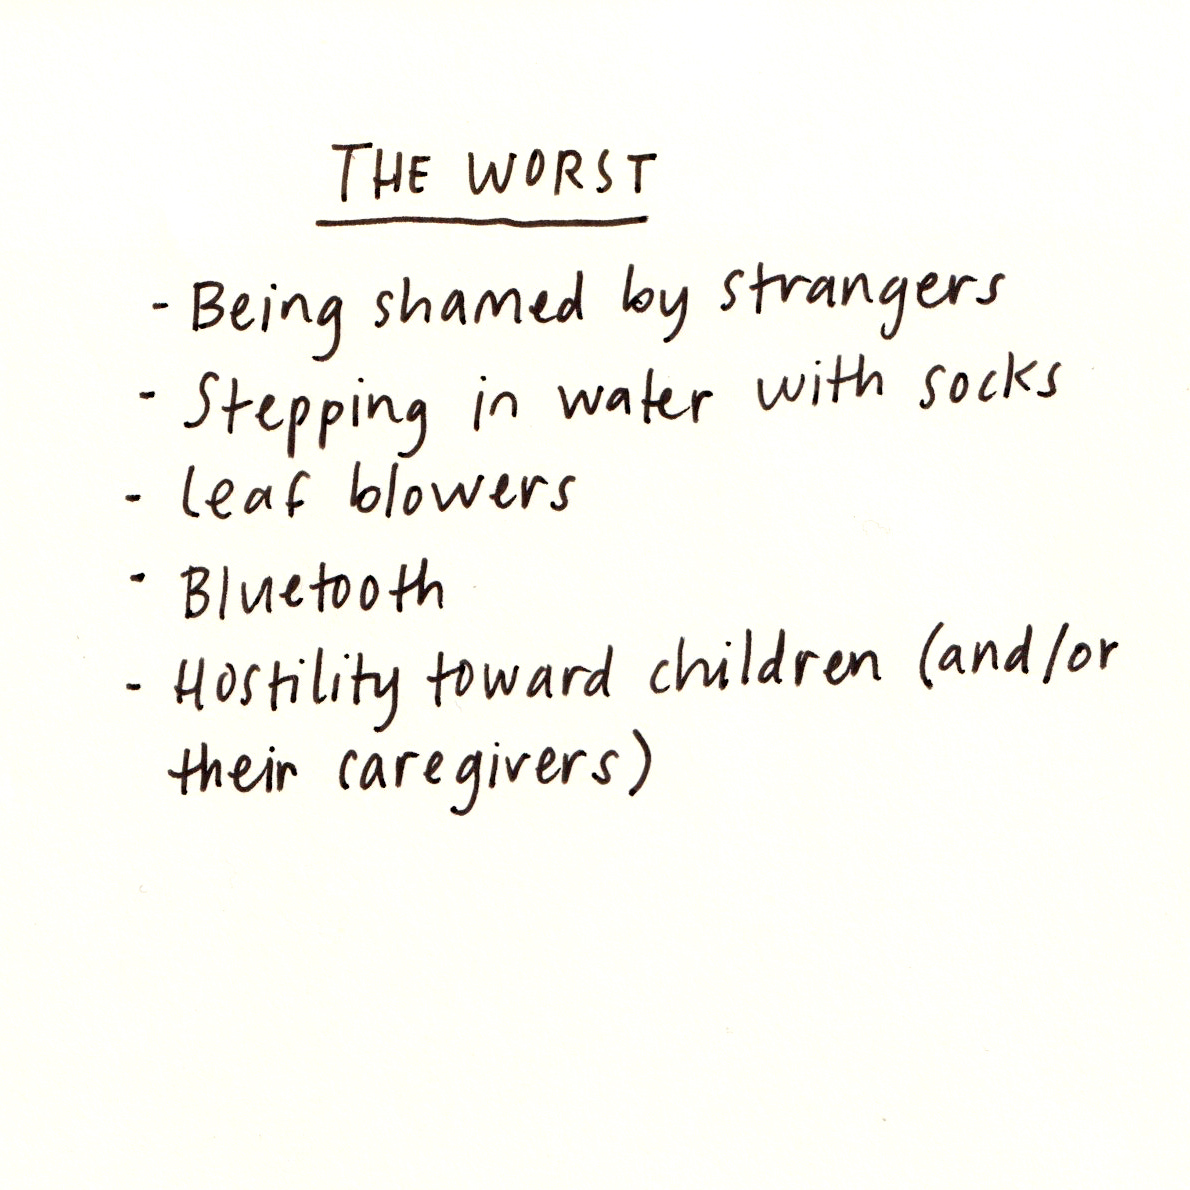 THE WORST
- Being shamed by strangers
- Stepping in water with socks
- leaf blowers
- Bluetooth
- Hostility toward children (and/or
their caregivers)